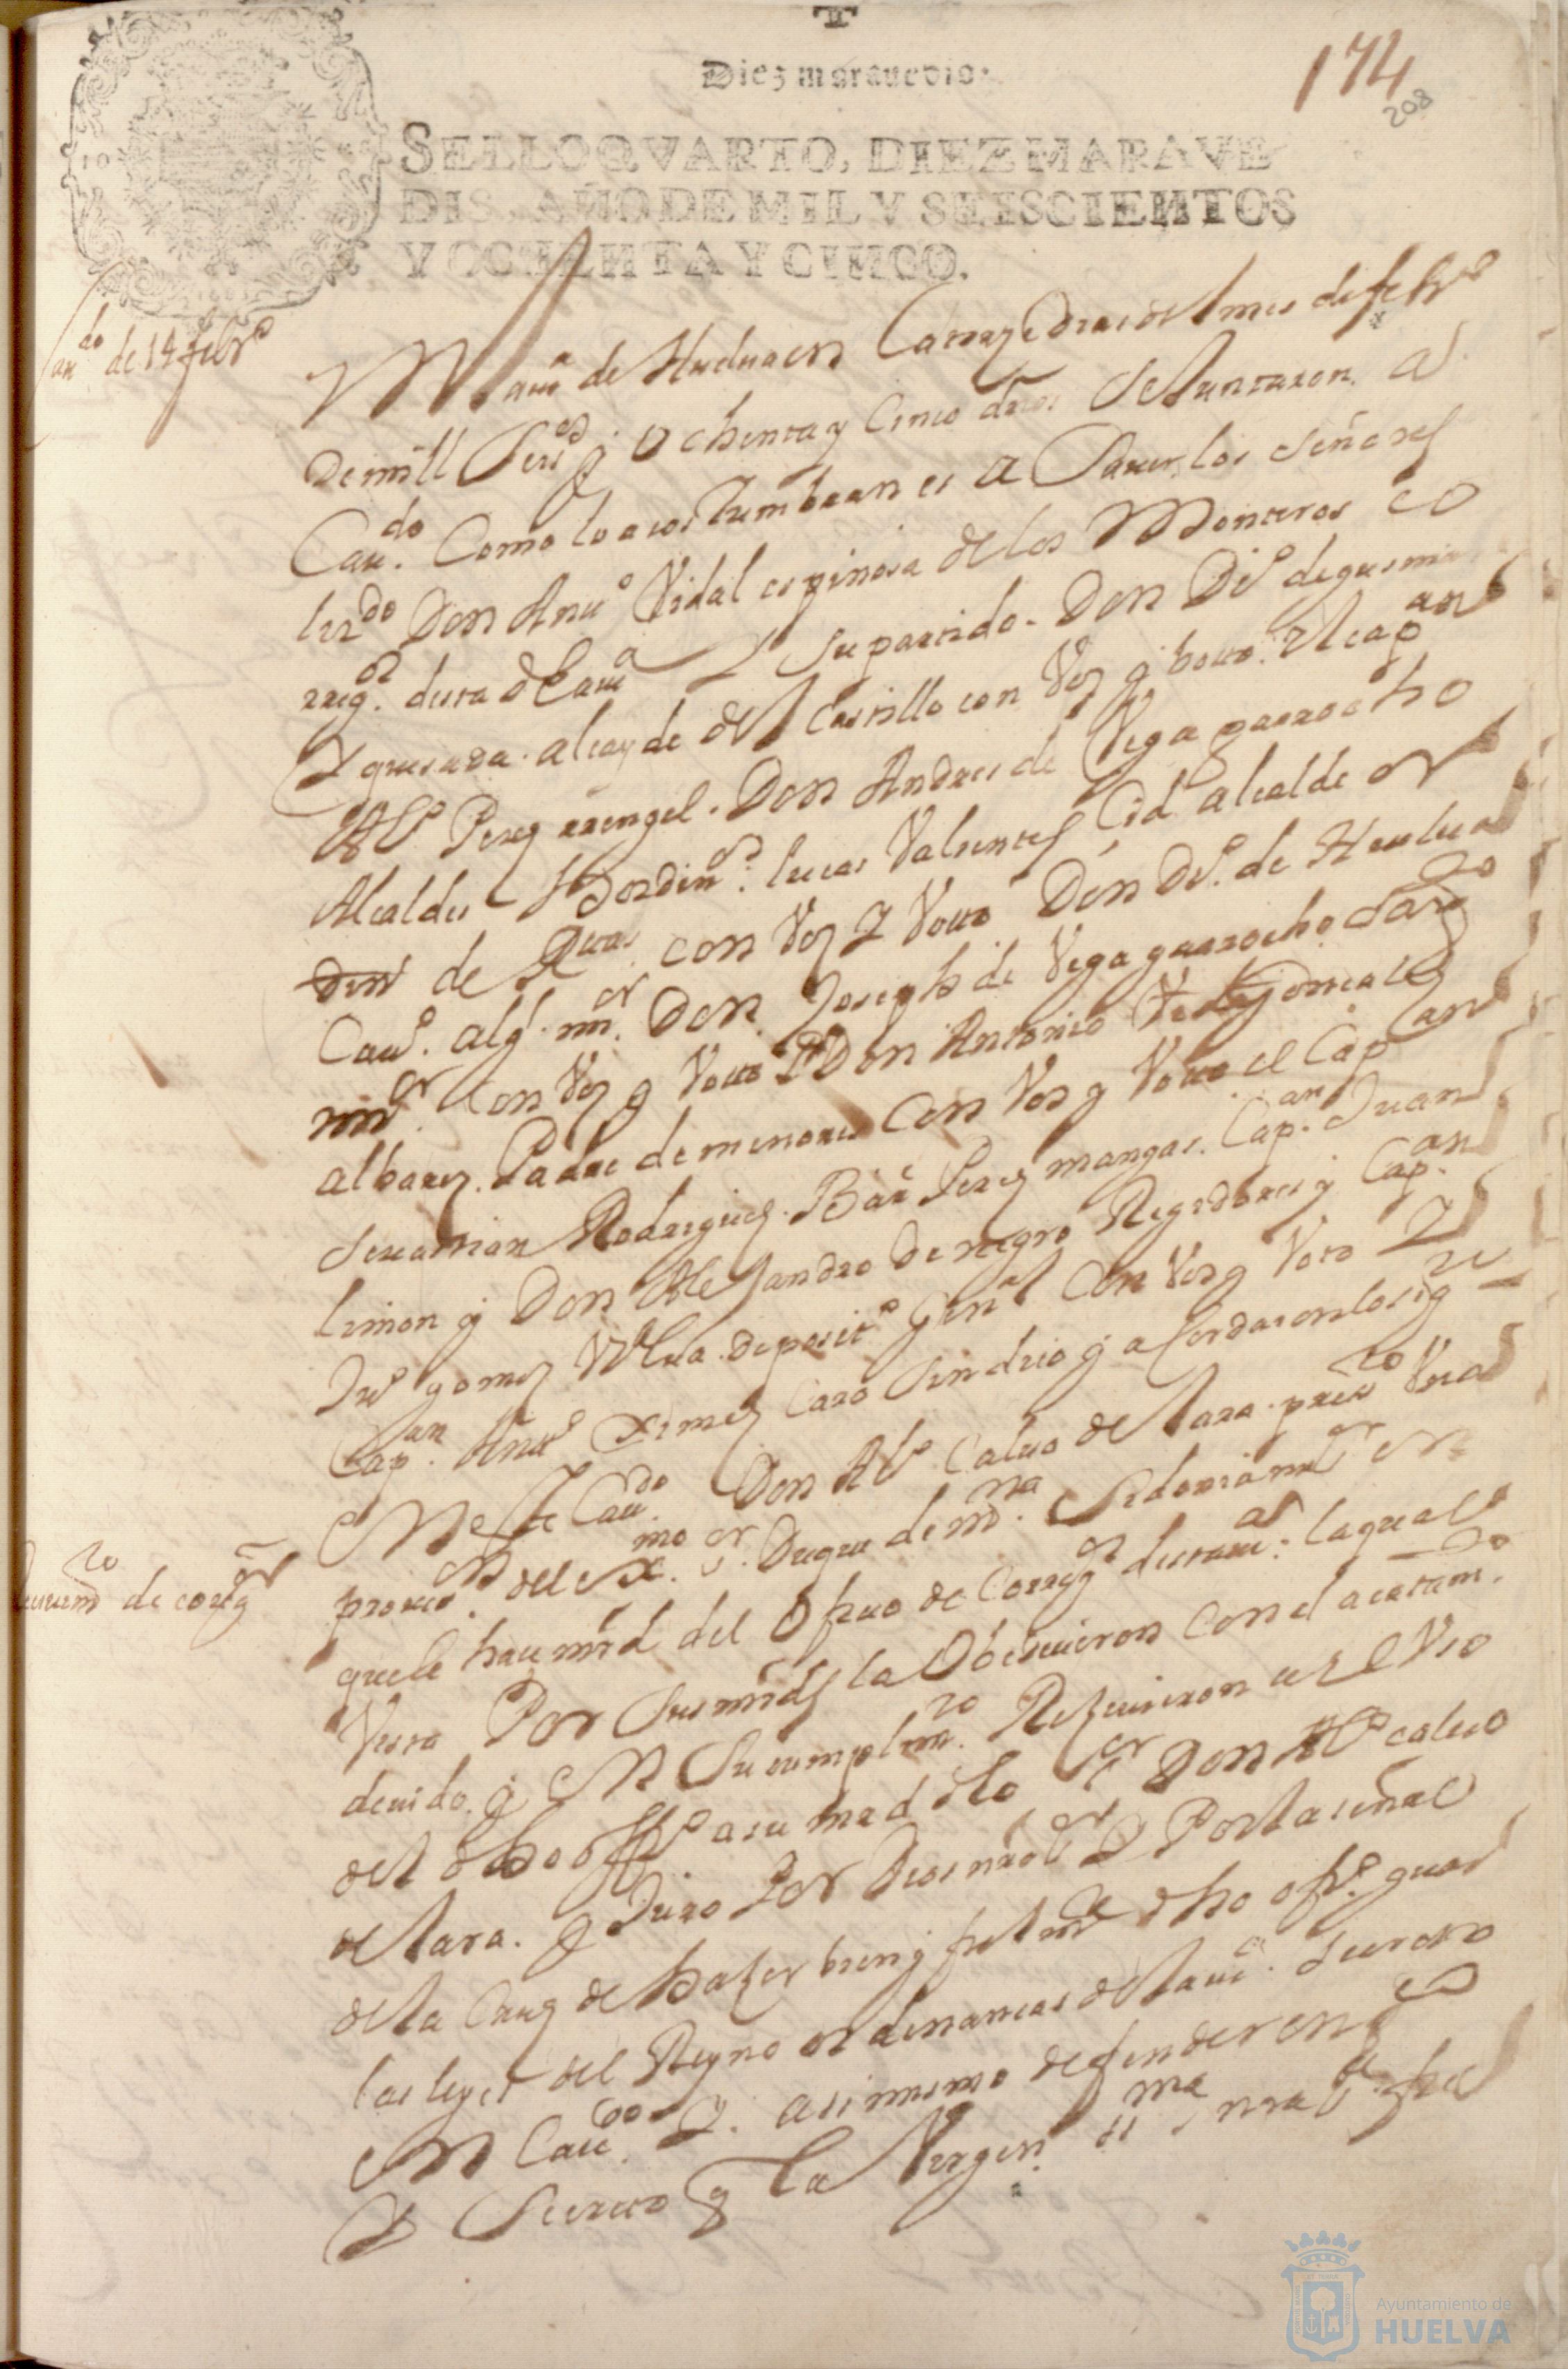 Diez marauedis.
174
208
SELLO QVARTO, DIEZ MARAVE
DIS, AÑO DE MIL Y SEISCIENTOS
Y OCHENTA Y CINCO.
Cau.do de 14 febr.o
de Huelua en Catorze dias del mes de febr.o
de mill Seis.os y ochenta y Cinco años Se Juntaron. a
Cau.do Como lo acostumbran es a Sauer. los Señores
liz.do Don Anto Vidal espinosa de los Monteros co
rreg.or desta dha uia y Su partido. Don Di.o de gusman
y quesada. alcayde del Castillo con Voz y botto. El cap.an
Al.o Perez rrengel. Don Andres de Vega garrocho
Alcaldes hordin.os lucas Valientes Cid alcalde
de con Voz y Votto Don Di.o de Huelua
Cau.o alg.l m.or Don Joseph de Vega garrocho Sarg.to
m.or Con Voz y Votto Don Antonio gonzalez
albarez. Padre de menores Con Voz y Votto. el Cap.an
Seuastian Rodriguez. Bar.e Perez mangas. Cap.an Juan
limon y Don Alejandro de negro Regidores y Cap.an
Ju.o gomez deposit.o Gen.l Con Voz y Voto y
Cap.an Anto Ximez Caro Sindico y acordaron lo sig.te
En este Cau.do Don Al.o Caluo de lara. pres.to Vna
prouis.on del ex.mo S.r Duque de m.na Sidonia mi S.or En
que le haze mrd del Ofizio de Correg.or desta uia. la qual
Vista Por Sus mrds la Obedecieron Con el acatam.to
deuido. y En Su cumplim.to Reziuieron al Vso
del dho ofi.o a su mrd dho S.r Don Al.o caluo
de lara. y Juro Por Dios nro S.or y Por la señal
de la Cruz de hazer bien y fielm.te dho ofi.o guar
las leyes del Reyno ordenanzas de la uia. Secreto
En Cau.do y. asi mismo defender en
y Secreto y la Virgen S.ma nra S.ra fue
Reziuim.to de correg.or
Ayuntamiento de
HUELVA